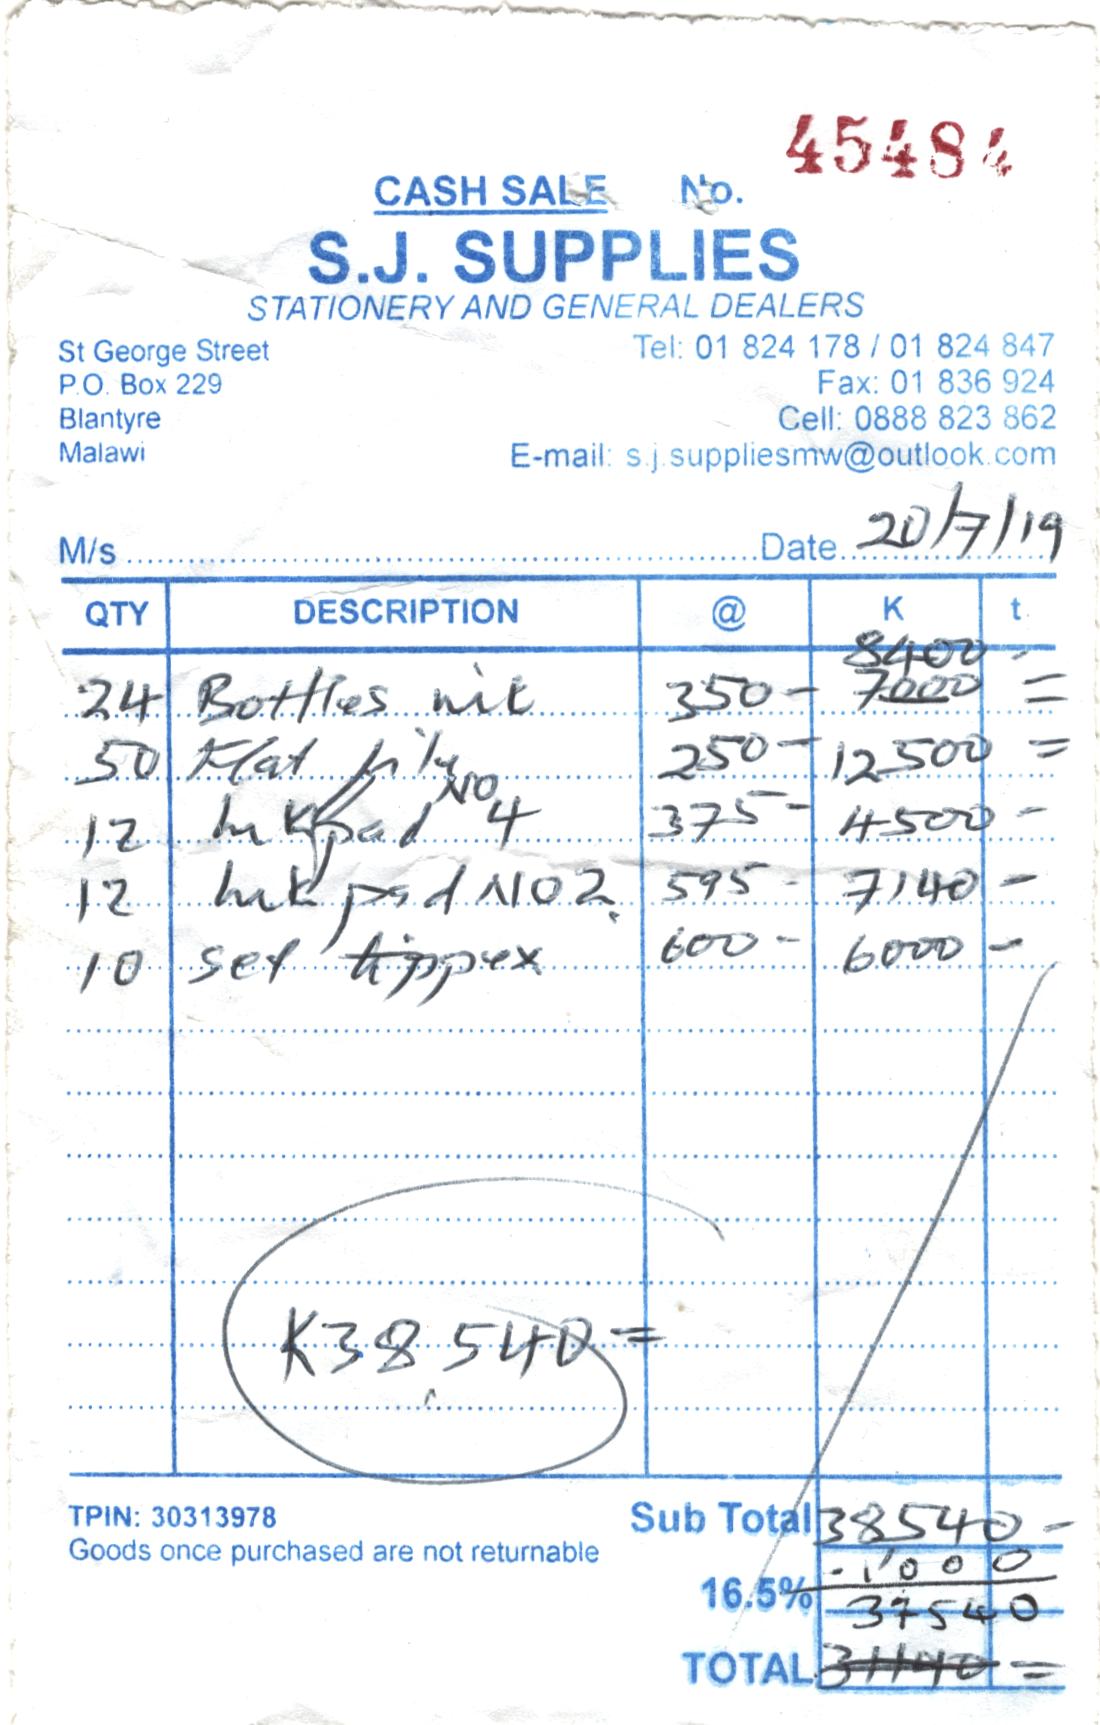 45484
CASH SALE No.
S.J. SUPPLIES
STATIONERY AND GENERAL DEALERS
St George Street
P.O. Box 229
Blantyre
Malawi
Tel: 01 824 178 / 01 824 847
Fax: 01 836 924
Cell: 0888 823 862
E-mail: s.j.suppliesmw@outlook.com
M/s Date 20/7/19
QTY DESCRIPTION @ K t
8400 -
24 Bottles ink 350- 7000 =
50 Flat file 250- 12500 =
12 Ink pad NO 4 375- 4500 -
12 Ink pad NO 2 595- 7140 -
10 set tippex 600- 6000 -
K38540=
TPIN: 30313978
Goods once purchased are not returnable
Sub Total 38540 -
- 1000
16.5%
37540
TOTAL 31140 =